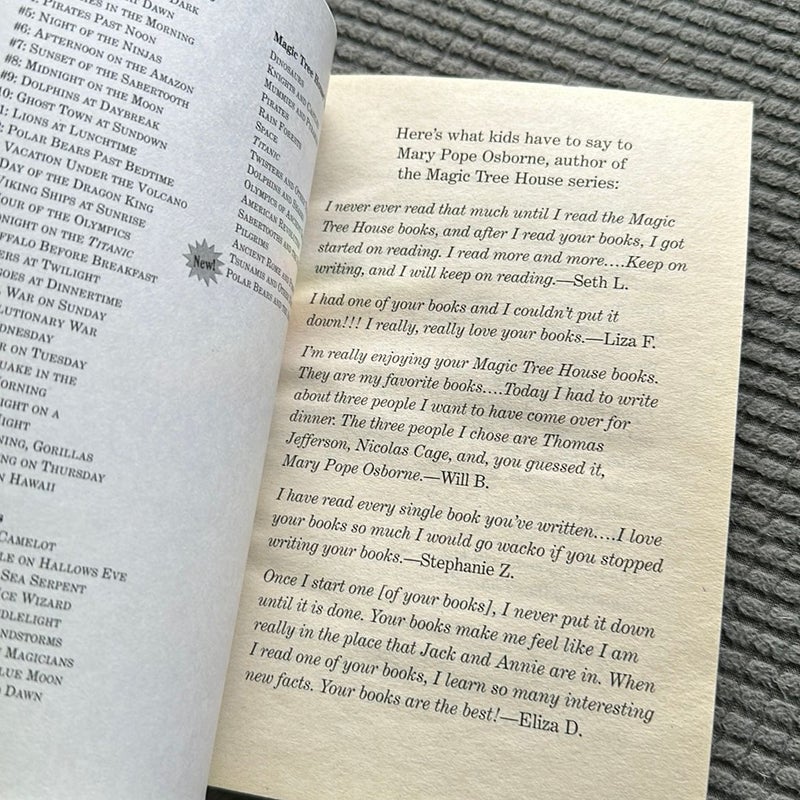 DARK
DAWN
IN THE MORNING
PIRATES PAST NOON
#5: NIGHT OF THE NINJAS
#6: AFTERNOON ON THE AMAZON
#7: SUNSET OF THE SABERTOOTH
#8: MIDNIGHT ON THE MOON
#9: DOLPHINS AT DAYBREAK
10: GHOST TOWN AT SUNDOWN
1: LIONS AT LUNCHTIME
: POLAR BEARS PAST BEDTIME
VACATION UNDER THE VOLCANO
DAY OF THE DRAGON KING
VIKING SHIPS AT SUNRISE
HOUR OF THE OLYMPICS
ONIGHT ON THE TITANIC
FFALO BEFORE BREAKFAST
ERS AT TWILIGHT
GOES AT DINNERTIME
WAR ON SUNDAY
LUTIONARY WAR
DNESDAY
R ON TUESDAY
UAKE IN THE
ORNING
IGHT ON A
IGHT
NING, GORILLAS
NG ON THURSDAY
N HAWAII
CAMELOT
LE ON HALLOWS EVE
SEA SERPENT
ICE WIZARD
DLELIGHT
NDSTORMS
MAGICIANS
LUE MOON
DAWN
Magic Tree House
DINOSAURS
KNIGHTS AND
MUMMIES AND
PIRATES
RAIN FORESTS
SPACE
TITANIC
TWISTERS AND
DOLPHINS AND
OLYMPICS OF
AMERICAN
SABERTOOTHS AND
PILGRIMS
New!
ANCIENT ROME AND
TSUNAMIS AND
POLAR BEARS AND
Here's what kids have to say to
Mary Pope Osborne, author of
the Magic Tree House series:
I never ever read that much until I read the Magic
Tree House books, and after I read your books, I got
started on reading. I read more and more....Keep on
writing, and I will keep on reading.—Seth L.
I had one of your books and I couldn't put it
down!!! I really, really love your books.—Liza F.
I'm really enjoying your Magic Tree House books.
They are my favorite books....Today I had to write
about three people I want to have come over for
dinner. The three people I chose are Thomas
Jefferson, Nicolas Cage, and, you guessed it,
Mary Pope Osborne.—Will B.
I have read every single book you've written....I love
your books so much I would go wacko if you stopped
writing your books.—Stephanie Z.
Once I start one [of your books], I never put it down
until it is done. Your books make me feel like I am
really in the place that Jack and Annie are in. When
I read one of your books, I learn so many interesting
new facts. Your books are the best!—Eliza D.